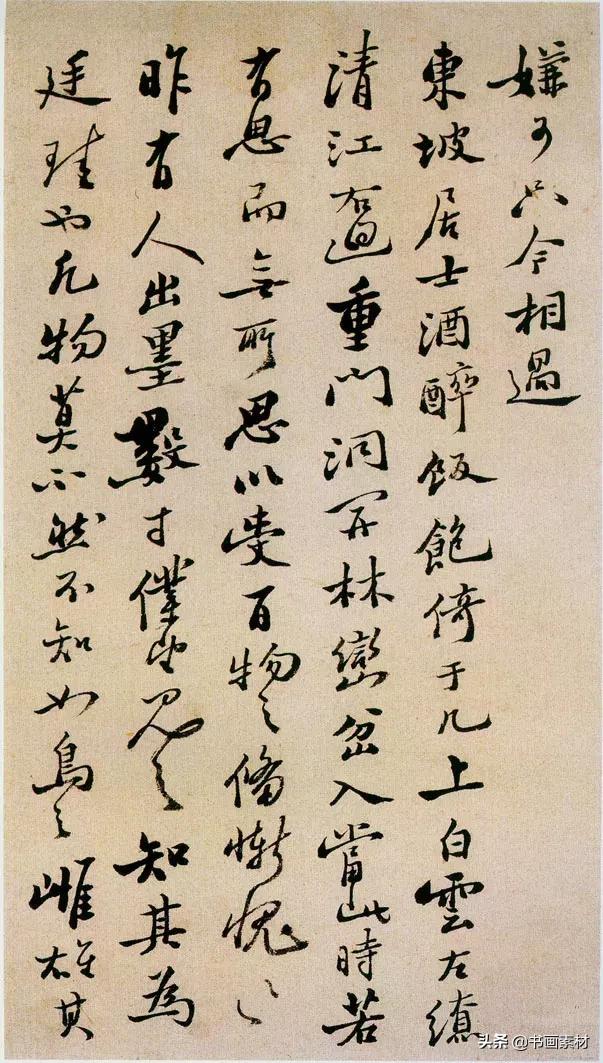 嫌可只今相過
東坡居士酒醉飯飽倚于几上白雲左繚
清江右迴重門洞開林巒岔入當此時若
有思而無所思以受百物之備慚愧〻
昨有人出墨數寸僕望見之知其為
廷珪也凡物莫不然不知如鳥之雌雄其
头条 @书画素材